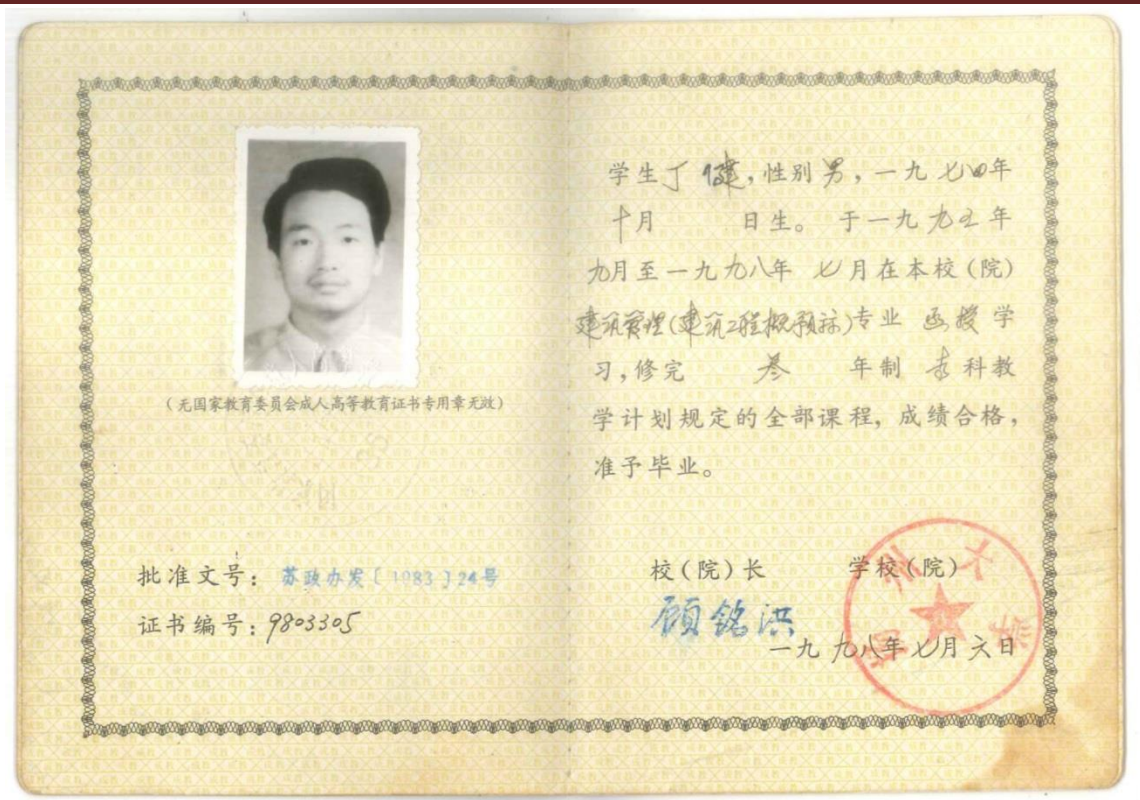 (无国家教育委员会成人高等教育证书专用章无效)
批准文号：苏政办发〔1983〕24号
证书编号：9803305
学生丁健，性别男，一九七四年
十月 日生。于一九九五年
九月至一九九八年 七月在本校(院)
建筑管理(建筑工程概预算)专业 函授学
习，修完 叁 年制 科教
学计划规定的全部课程，成绩合格，
准予毕业。
校(院)长 学校(院)
顾铭洪
一九九八年七月六日
扬州大学